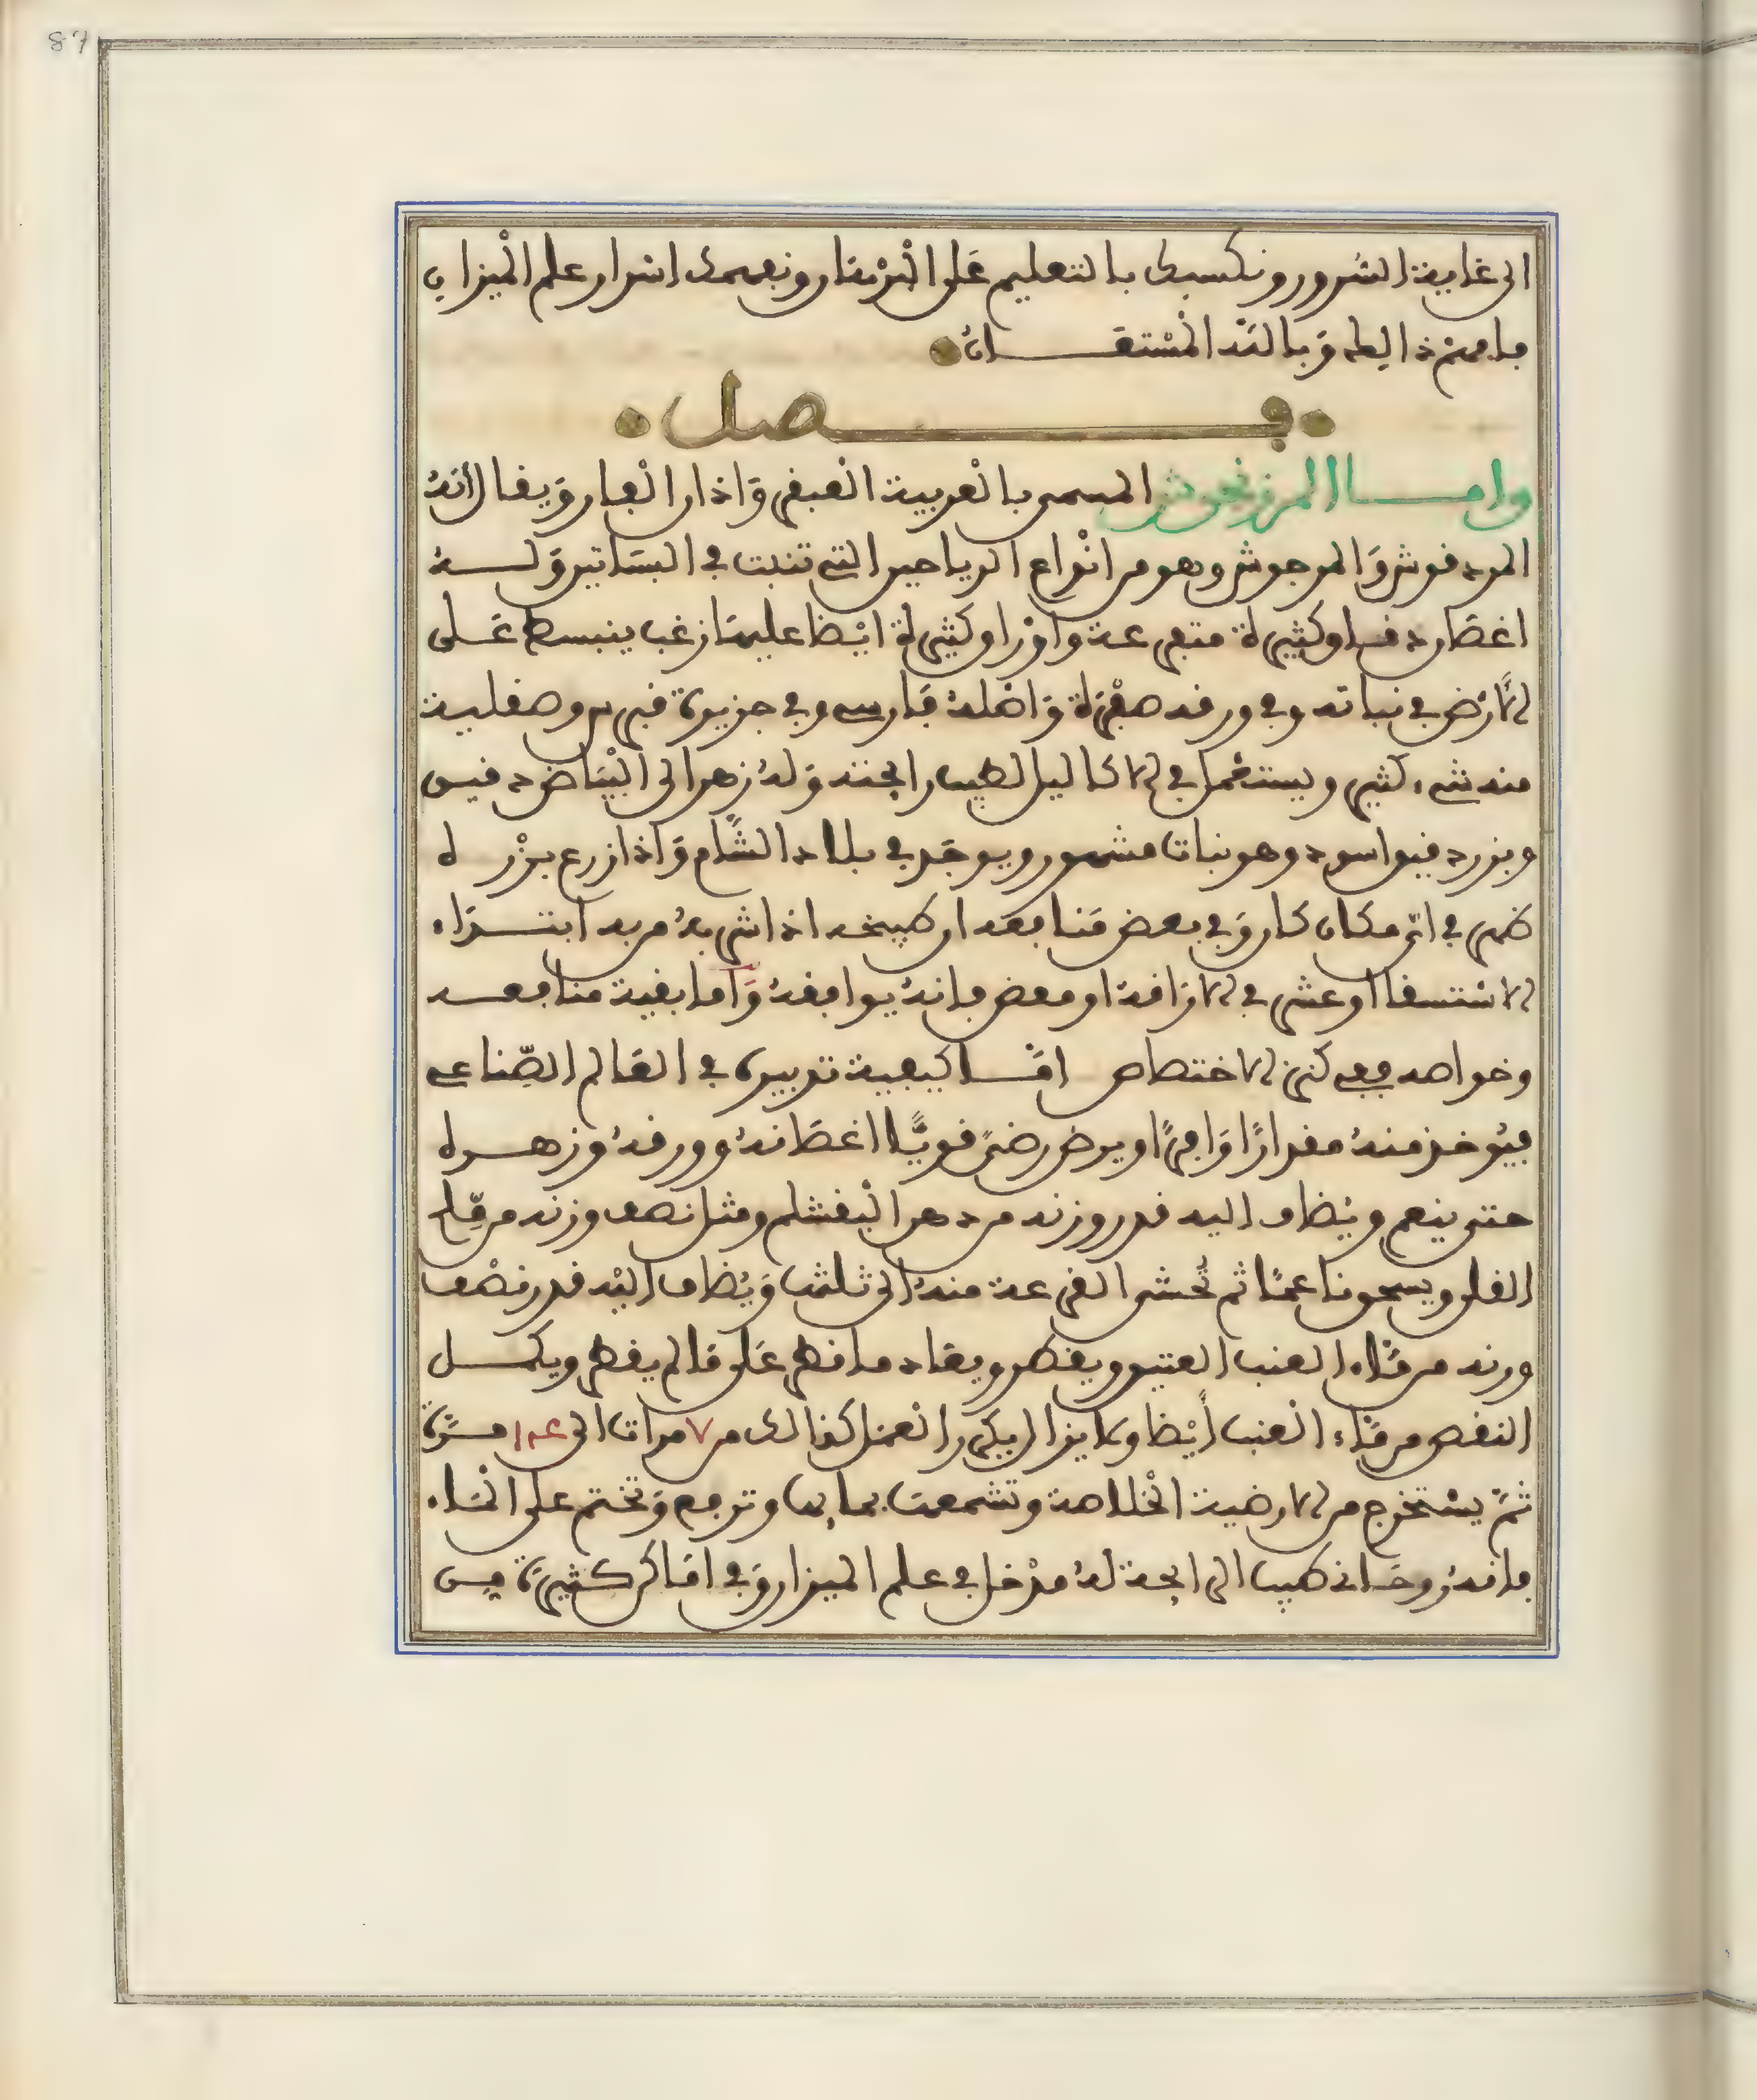 87
الى غاية السرور ونكسبك بالتعليم على البرهان ونفهمك اسرار علم الميزان
فافهم ذالك وبالله المستعان
فصل
واما المرزنجوش المسمى بالعربية العبقر وآذان الفار ويقال أنه
المردقوش والمرجوش وهو من انواع الرياحين التي تنبت في البساتين وله
اغصان دقاق وكثيرة متفرعة واوراق كثيرة ايضا عليها زغب ينبسط على
الأرض في نباته وفي ورقه صفرة واصله فارسي وفي جزيرة قبرس وصقلية
منه شيء كثير ويستعمل في الاكاليل لطيب رائحته وله زهر الى البياض دقيق
وبزر دقيق اسود وهو نبات مشهور ويوجد في بلاد الشام واذا زرع بزره
ظهر في اي مكان كان وفي بعض منافعه ان طبيخه اذا شربه من به ابتداء
الاستسقا او عسر في الاراقة او مغص فانه يوافقه وأما بقية منافعه
وخواصه ففي كنز الاختصاص اما كيفية تدبيره في العالم الصناعي
فيؤخذ منه مقدارًا وافرًا ويرض رضًّى قويًّا اغصانه وورقه وزهره
حتى ينعم ويضاف اليه قدر وزنه من دهن البقشلم ومثل نصف وزنه من ملح
القلي ويسحق ناعمًا ثم تحشى القرعة منه الى ثلثها ويضاف اليه قدر نصف
وزنه من ماء العنب العتيق ويقطر ويعاد ما قطر على ما لم يقطر ويكمل
النقص من ماء العنب أيضا ولا يزال يكرر العمل كذالك من ٧ مرات الى ١٤ مرة
ثم يستخرج من الارضية الخلاصة وتشمع بمائها وترفع وتختم على الماء
فانه روحاني طيب الرائحة له مدخل في علم الميزان وفي اماكن كثيرة من